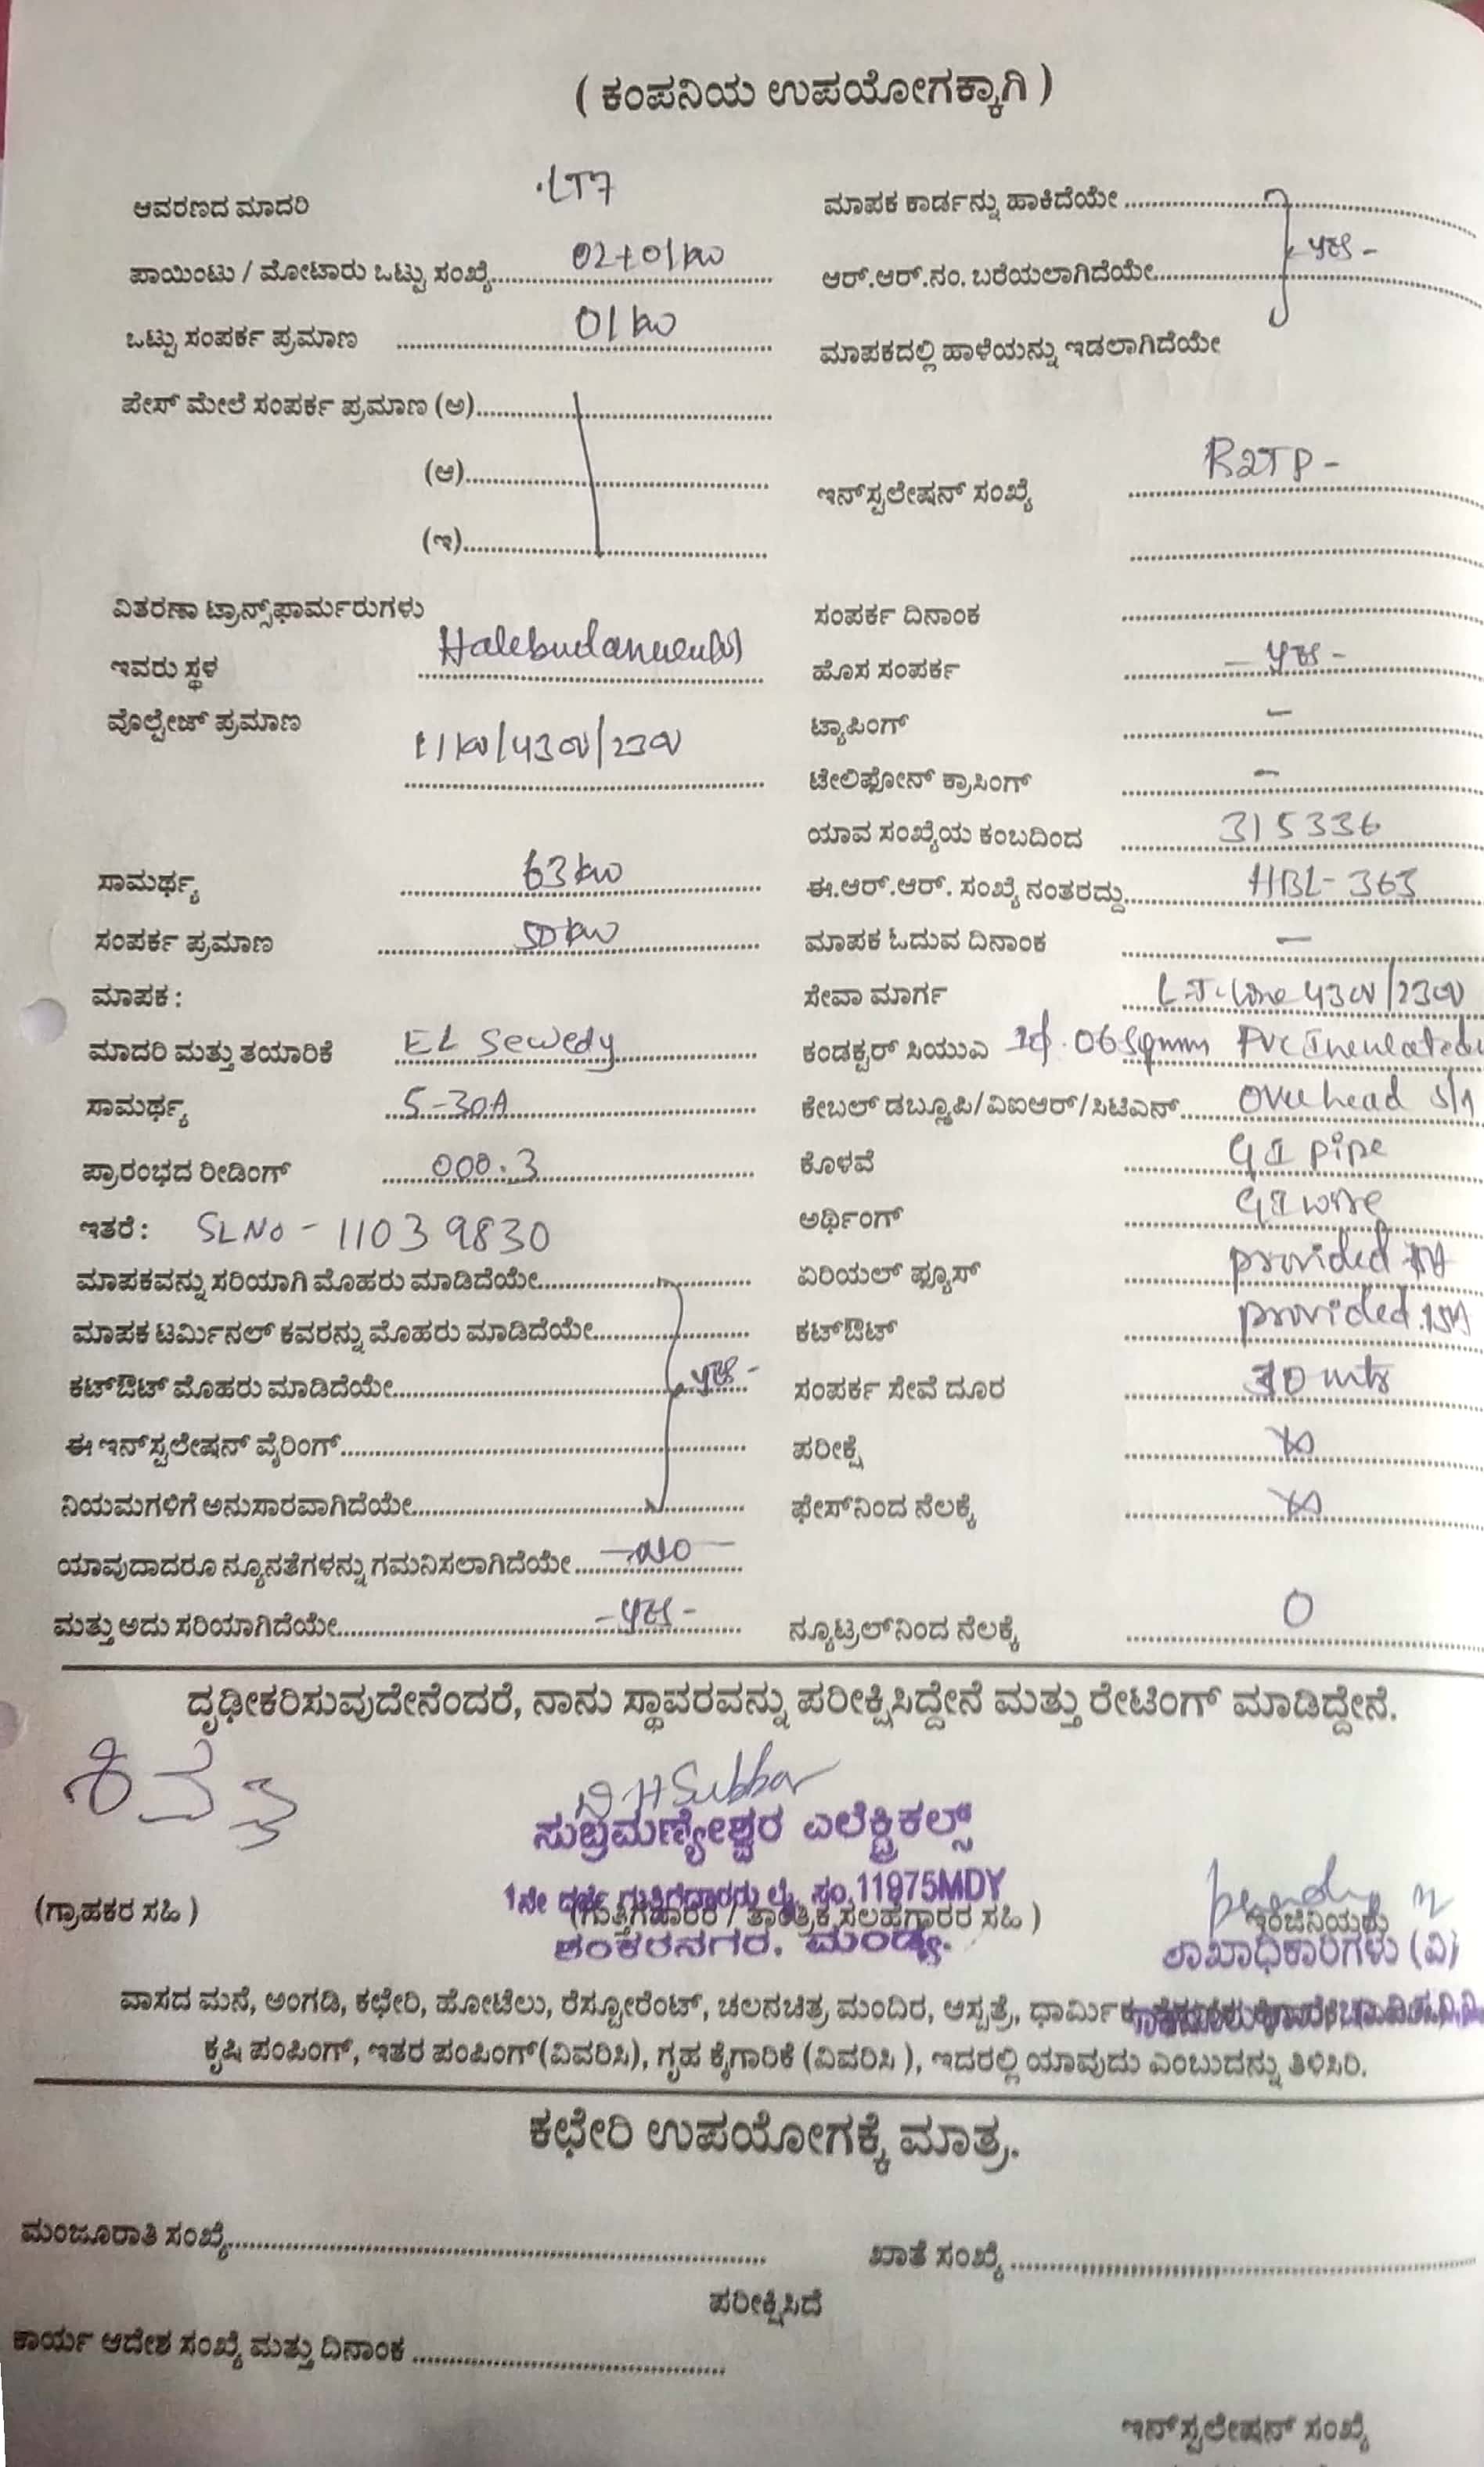 ( ಕಂಪನಿಯ ಉಪಯೋಗಕ್ಕಾಗಿ )
ಆವರಣದ ಮಾದರಿ LT7
ಪಾಯಿಂಟು / ಮೋಟಾರು ಒಟ್ಟು ಸಂಖ್ಯೆ 02+01kw
ಒಟ್ಟು ಸಂಪರ್ಕ ಪ್ರಮಾಣ 01kw
ಪೇಸ್ ಮೇಲೆ ಸಂಪರ್ಕ ಪ್ರಮಾಣ (ಅ)
(ಆ)
(ಇ)
ವಿತರಣಾ ಟ್ರಾನ್ಸ್‌ಫಾರ್ಮರುಗಳು
ಇವರು ಸ್ಥಳ
ವೊಲ್ಟೇಜ್ ಪ್ರಮಾಣ 11kv/430v/230v
ಸಾಮರ್ಥ್ಯ 63kw
ಸಂಪರ್ಕ ಪ್ರಮಾಣ 50kw
ಮಾಪಕ :
ಮಾದರಿ ಮತ್ತು ತಯಾರಿಕೆ EL Sewedy
ಸಾಮರ್ಥ್ಯ 5-30A
ಪ್ರಾರಂಭದ ರೀಡಿಂಗ್ 000.3
ಇತರೆ : SLNo - 11039830
ಮಾಪಕವನ್ನು ಸರಿಯಾಗಿ ಮೊಹರು ಮಾಡಿದೆಯೇ
ಮಾಪಕ ಟರ್ಮಿನಲ್ ಕವರನ್ನು ಮೊಹರು ಮಾಡಿದೆಯೇ
ಕಟ್‌ಔಟ್ ಮೊಹರು ಮಾಡಿದೆಯೇ yes -
ಈ ಇನ್‌ಸ್ಟಲೇಷನ್ ವೈರಿಂಗ್
ನಿಯಮಗಳಿಗೆ ಅನುಸಾರವಾಗಿದೆಯೇ
ಯಾವುದಾದರೂ ನ್ಯೂನತೆಗಳನ್ನು ಗಮನಿಸಲಾಗಿದೆಯೇ - No -
ಮತ್ತು ಅದು ಸರಿಯಾಗಿದೆಯೇ - yes -
ಮಾಪಕ ಕಾರ್ಡನ್ನು ಹಾಕಿದೆಯೇ
ಆರ್.ಆರ್.ನಂ. ಬರೆಯಲಾಗಿದೆಯೇ yes -
ಮಾಪಕದಲ್ಲಿ ಹಾಳೆಯನ್ನು ಇಡಲಾಗಿದೆಯೇ
ಇನ್‌ಸ್ಟಲೇಷನ್ ಸಂಖ್ಯೆ
ಸಂಪರ್ಕ ದಿನಾಂಕ
ಹೊಸ ಸಂಪರ್ಕ - yes -
ಟ್ಯಾಪಿಂಗ್ -
ಟೇಲಿಫೋನ್ ಕ್ರಾಸಿಂಗ್ -
ಯಾವ ಸಂಖ್ಯೆಯ ಕಂಬದಿಂದ 315336
ಈ.ಆರ್.ಆರ್. ಸಂಖ್ಯೆ ನಂತರದ್ದು HBL-363
ಮಾಪಕ ಓದುವ ದಿನಾಂಕ -
ಸೇವಾ ಮಾರ್ಗ L.T. Line 430v/230v
ಕಂಡಕ್ಟರ್ ಸಿಯುಎ 06sqmm PVC
ಕೇಬಲ್ ಡಬ್ಲ್ಯೂಪಿ/ವಿಐಆರ್/ಸಿಟಿಎನ್ Overhead
ಕೊಳವೆ GI pipe
ಅರ್ಥಿಂಗ್ GI wire
ಏರಿಯಲ್ ಫ್ಯೂಸ್ provided
ಕಟ್‌ಔಟ್ provided 15A
ಸಂಪರ್ಕ ಸೇವೆ ದೂರ mts
ಪರೀಕ್ಷೆ
ಫೇಸ್‌ನಿಂದ ನೆಲಕ್ಕೆ
ನ್ಯೂಟ್ರಲ್‌ನಿಂದ ನೆಲಕ್ಕೆ 0
ದೃಢೀಕರಿಸುವುದೇನೆಂದರೆ, ನಾನು ಸ್ಥಾವರವನ್ನು ಪರೀಕ್ಷಿಸಿದ್ದೇನೆ ಮತ್ತು ರೇಟಿಂಗ್ ಮಾಡಿದ್ದೇನೆ.
ಸುಬ್ರಮಣ್ಯೇಶ್ವರ ಎಲೆಕ್ಟ್ರಿಕಲ್ಸ್
1ನೇ ದರ್ಜೆ ಗುತ್ತಿಗೆದಾರರು ಲೈ. ಸಂ.11975MDY
(ಗ್ರಾಹಕರ ಸಹಿ ) (ಗುತ್ತಿಗೆದಾರರ / ತಾಂತ್ರಿಕ ಸಲಹೆಗಾರರ ಸಹಿ ) ಇಂಜಿನಿಯರು
ಶಂಕರನಗರ. ಮಂಡ್ಯ. ಶಾಖಾಧಿಕಾರಿಗಳು (ವಿ)
ವಾಸದ ಮನೆ, ಅಂಗಡಿ, ಕಛೇರಿ, ಹೋಟೆಲು, ರೆಸ್ಟೋರೆಂಟ್, ಚಲನಚಿತ್ರ ಮಂದಿರ, ಆಸ್ಪತ್ರೆ, ಧಾರ್ಮಿಕ
ಕೃಷಿ ಪಂಪಿಂಗ್, ಇತರ ಪಂಪಿಂಗ್(ವಿವರಿಸಿ), ಗೃಹ ಕೈಗಾರಿಕೆ (ವಿವರಿಸಿ ), ಇದರಲ್ಲಿ ಯಾವುದು ಎಂಬುದನ್ನು ತಿಳಿಸಿರಿ.
ಕಛೇರಿ ಉಪಯೋಗಕ್ಕೆ ಮಾತ್ರ.
ಮಂಜೂರಾತಿ ಸಂಖ್ಯೆ ಖಾತೆ ಸಂಖ್ಯೆ
ಪರೀಕ್ಷಿಸಿದೆ
ಕಾರ್ಯ ಆದೇಶ ಸಂಖ್ಯೆ ಮತ್ತು ದಿನಾಂಕ
ಇನ್‌ಸ್ಟಲೇಷನ್ ಸಂಖ್ಯೆ